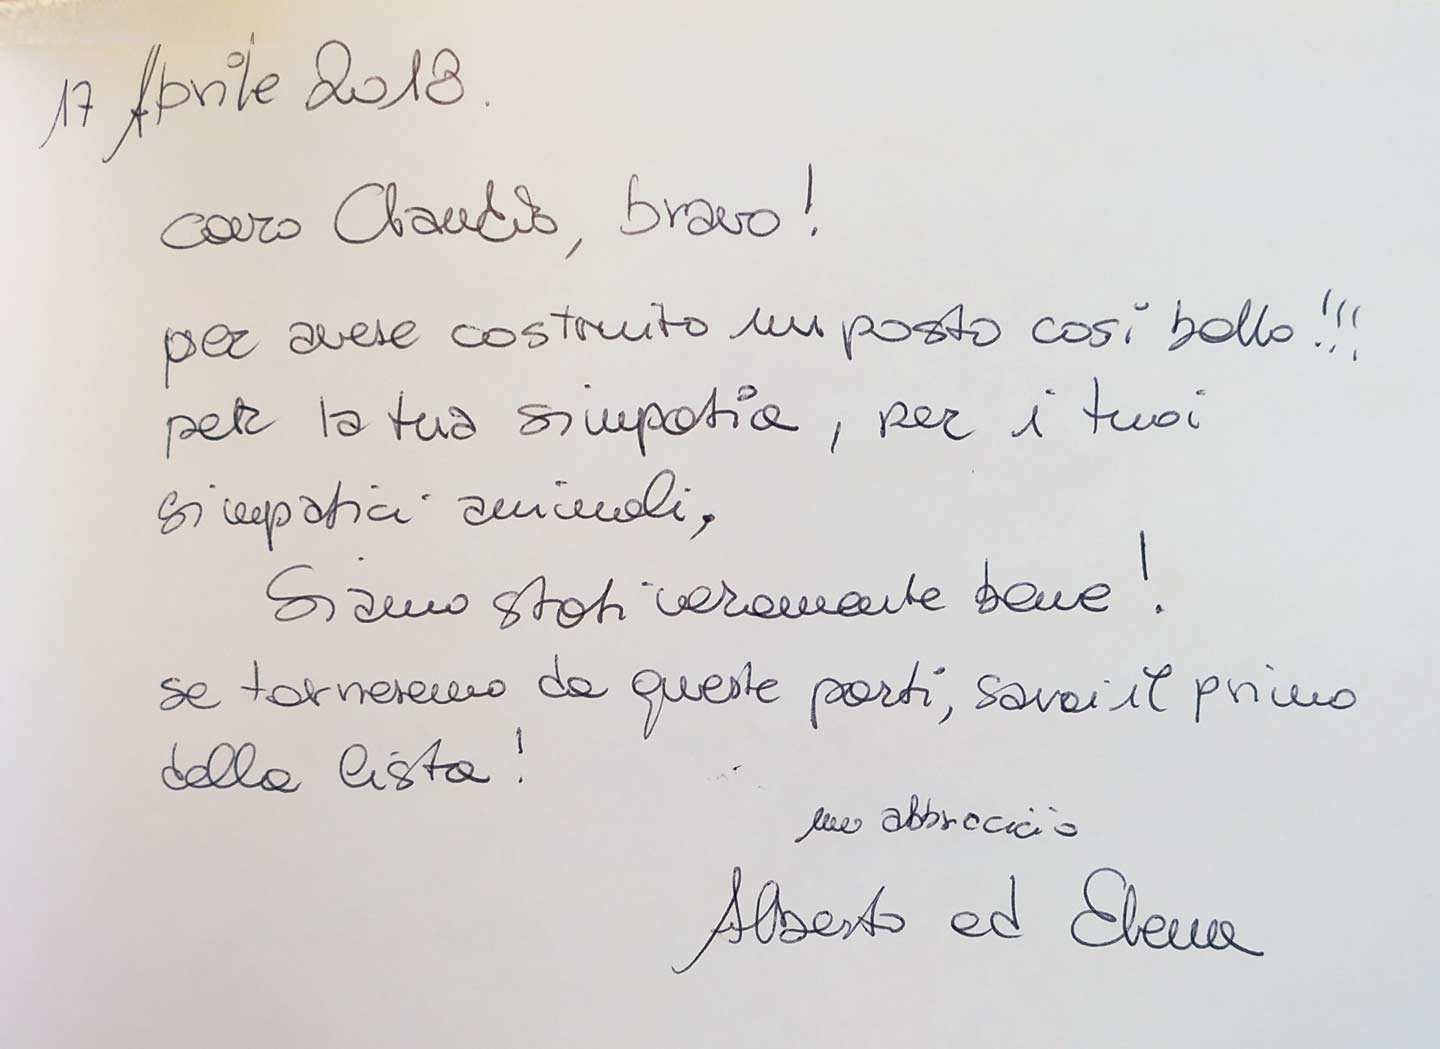 17 Aprile 2018.
caro Claudio, bravo!
per avere costruito un posto così bello!!!
per la tua simpatia, per i tuoi
simpatici animali,
Siamo stati veramente bene!
se torneremo da queste parti, sarai il primo
della lista!
un abbraccio
Alberto ed Elena